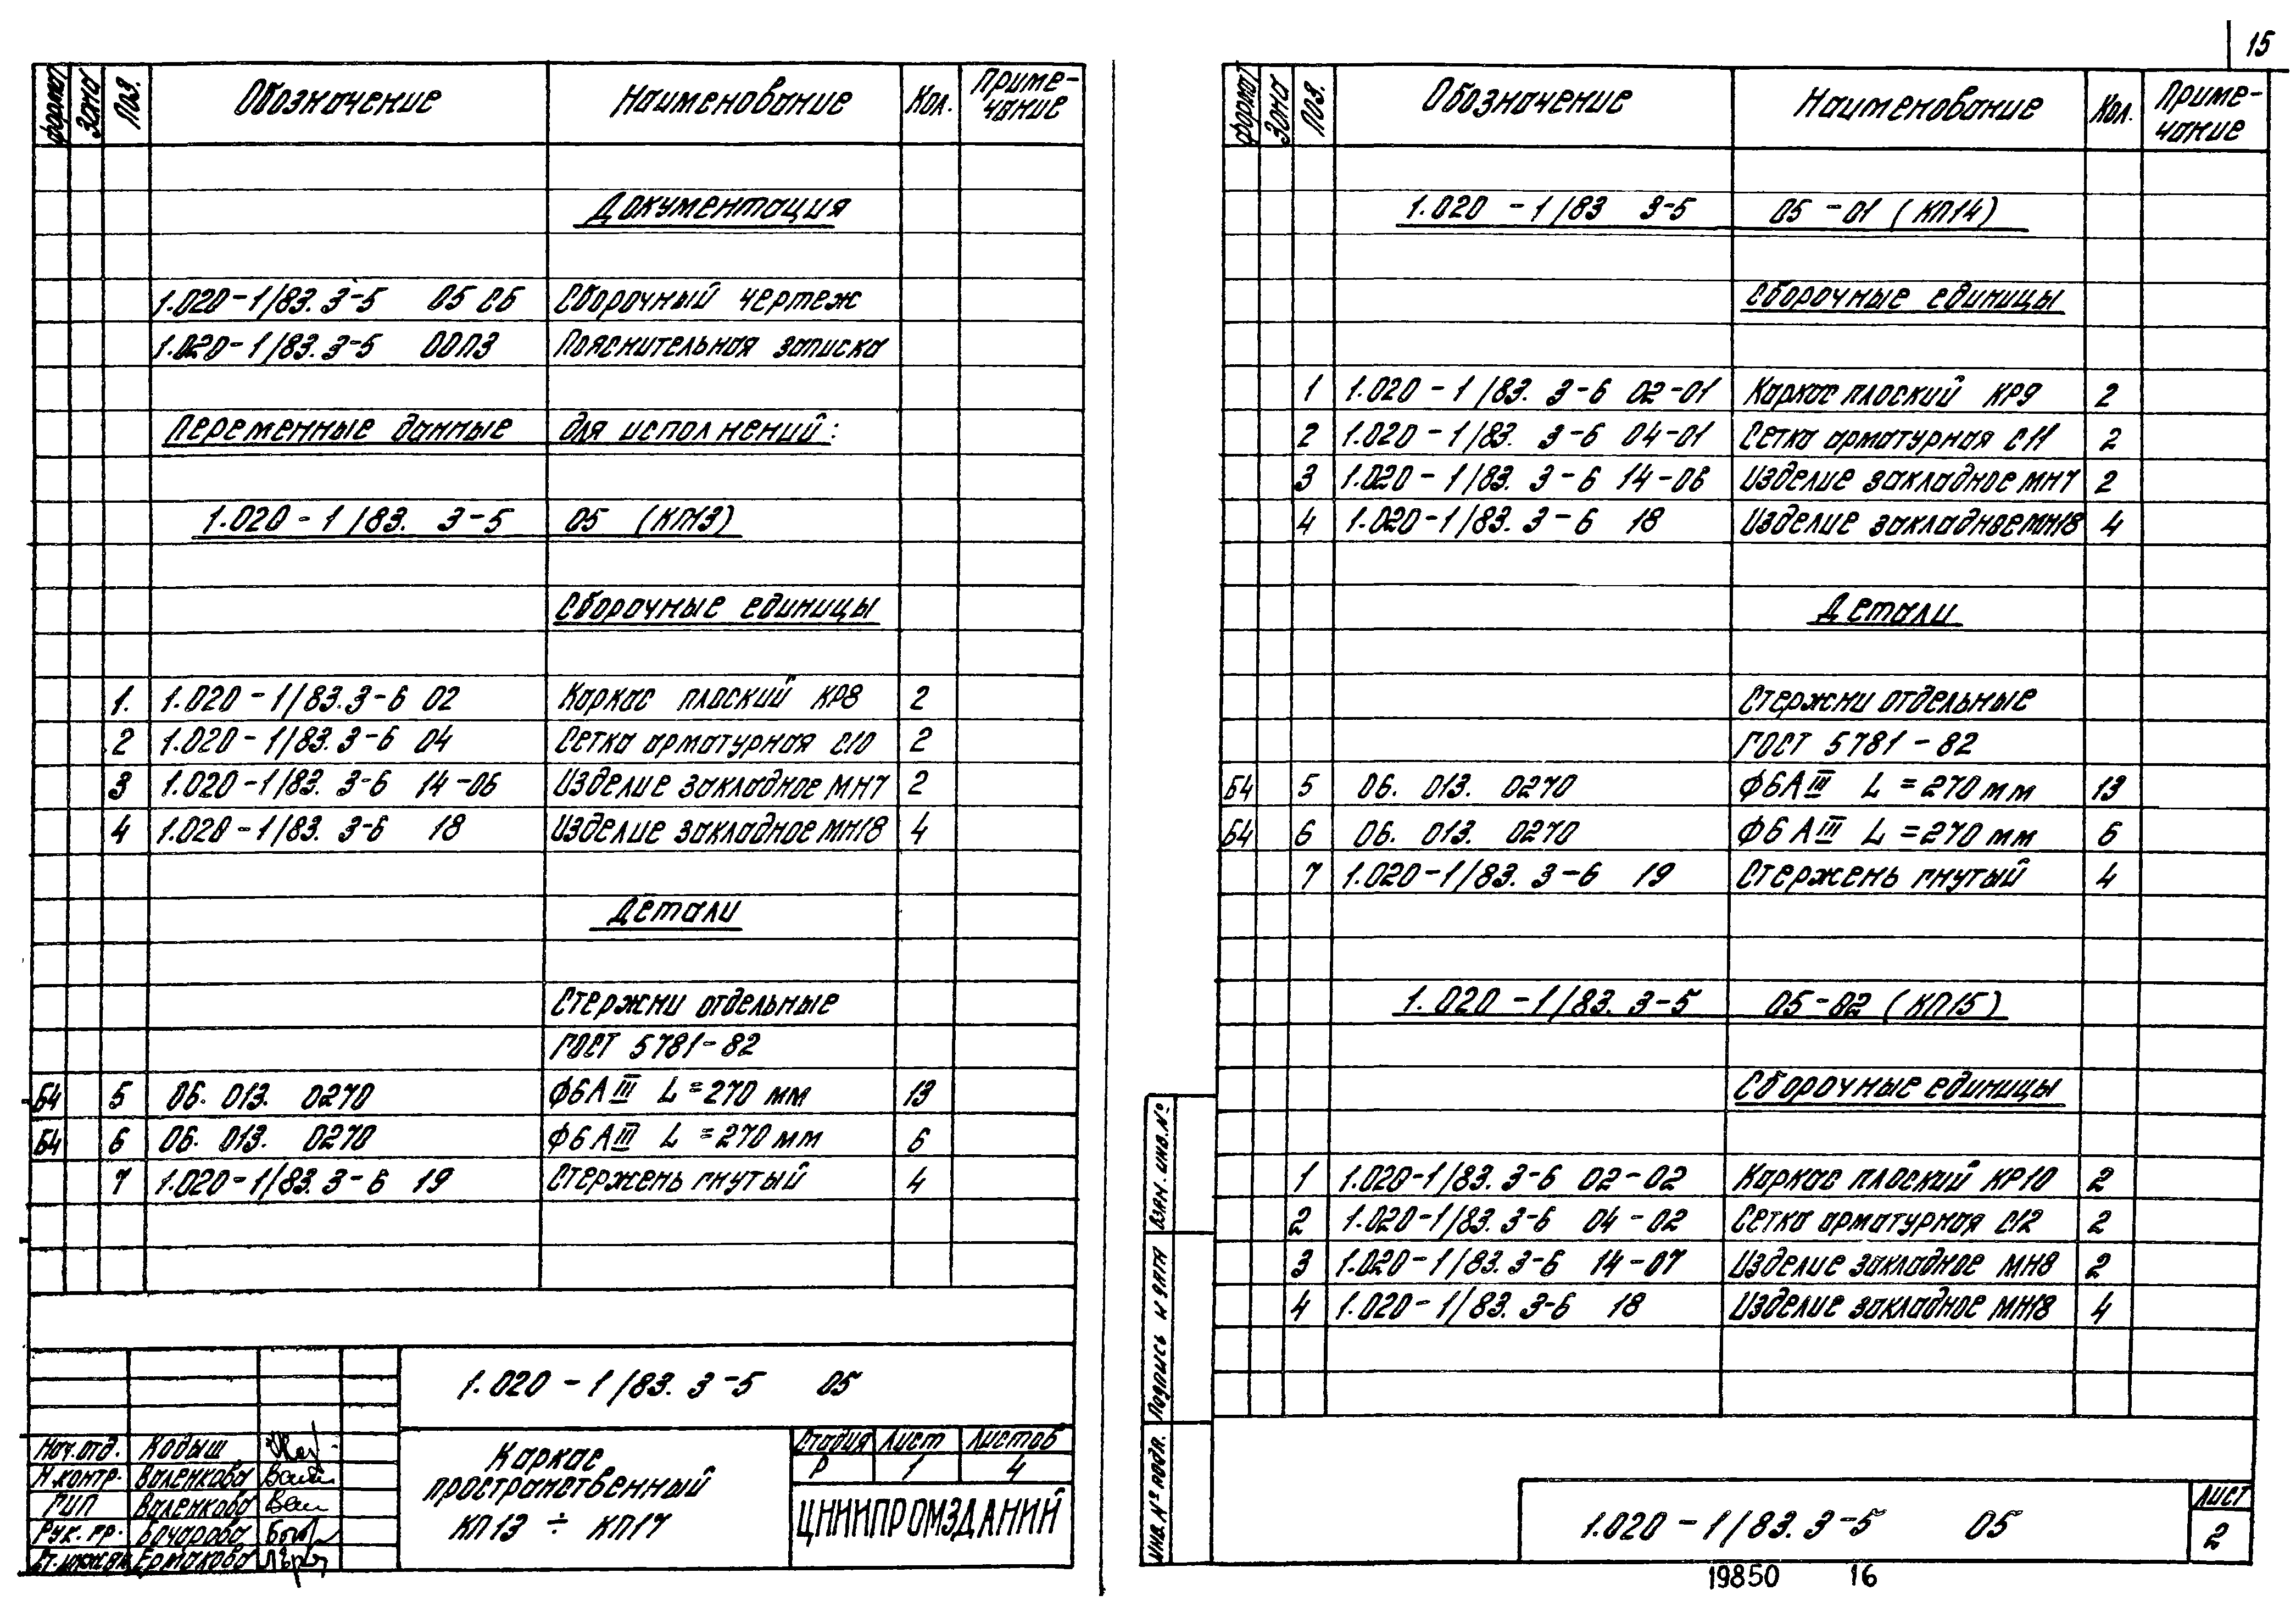 15
Формат Зона Поз. Обозначение Наименование Кол. Приме-
чание
Документация
1.020-1/83. 3-5 05 СБ Сборочный чертеж
1.020-1/83. 3-5 00ПЗ Пояснительная записка
Переменные данные для исполнений:
1.020-1/83. 3-5 05 (КП13)
Сборочные единицы
1. 1.020-1/83. 3-6 02 Каркас плоский КР8 2
2 1.020-1/83. 3-6 04 Сетка арматурная С10 2
3 1.020-1/83. 3-6 14-06 Изделие закладное МН7 2
4 1.020-1/83. 3-6 18 Изделие закладное МН18 4
Детали
Стержни отдельные
ГОСТ 5781-82
Б4 5 06. 013. 0270 Ф6АIII L=270 мм 13
Б4 6 06. 013. 0270 Ф6АIII L=270 мм 6
7 1.020-1/83. 3-6 19 Стержень гнутый 4
1.020-1/83. 3-5 05
Нач.отд. Кодыш
Н.контр. Валенкова
ГИП Валенкова
Рук. гр. Бочарова
Ермакова
Каркас
пространственный
КП13 ÷ КП17
Стадия Лист Листов
Р 1 4
ЦНИИПРОМЗДАНИЙ
Формат Зона Поз. Обозначение Наименование Кол. Приме-
чание
1.020-1/83 3-5 05-01 (КП14)
Сборочные единицы
1 1.020-1/83. 3-6 02-01 Каркас плоский КР9 2
2 1.020-1/83. 3-6 04-01 Сетка арматурная С11 2
3 1.020-1/83. 3-6 14-06 Изделие закладное МН7 2
4 1.020-1/83. 3-6 18 Изделие закладное МН18 4
Детали
Стержни отдельные
ГОСТ 5781-82
Б4 5 06. 013. 0270 Ф6АIII L=270 мм 13
Б4 6 06. 013. 0270 Ф6АIII L=270 мм 6
7 1.020-1/83. 3-6 19 Стержень гнутый 4
1.020-1/83. 3-5 05-02 (КП15)
Сборочные единицы
1 1.020-1/83. 3-6 02-02 Каркас плоский КР10 2
2 1.020-1/83. 3-6 04-02 Сетка арматурная С12 2
3 1.020-1/83. 3-6 14-07 Изделие закладное МН8 2
4 1.020-1/83. 3-6 18 Изделие закладное МН18 4
Взам. инв. №
Подпись и дата
Инв. № подл.
1.020-1/83. 3-5 05
Лист
2
19850 16